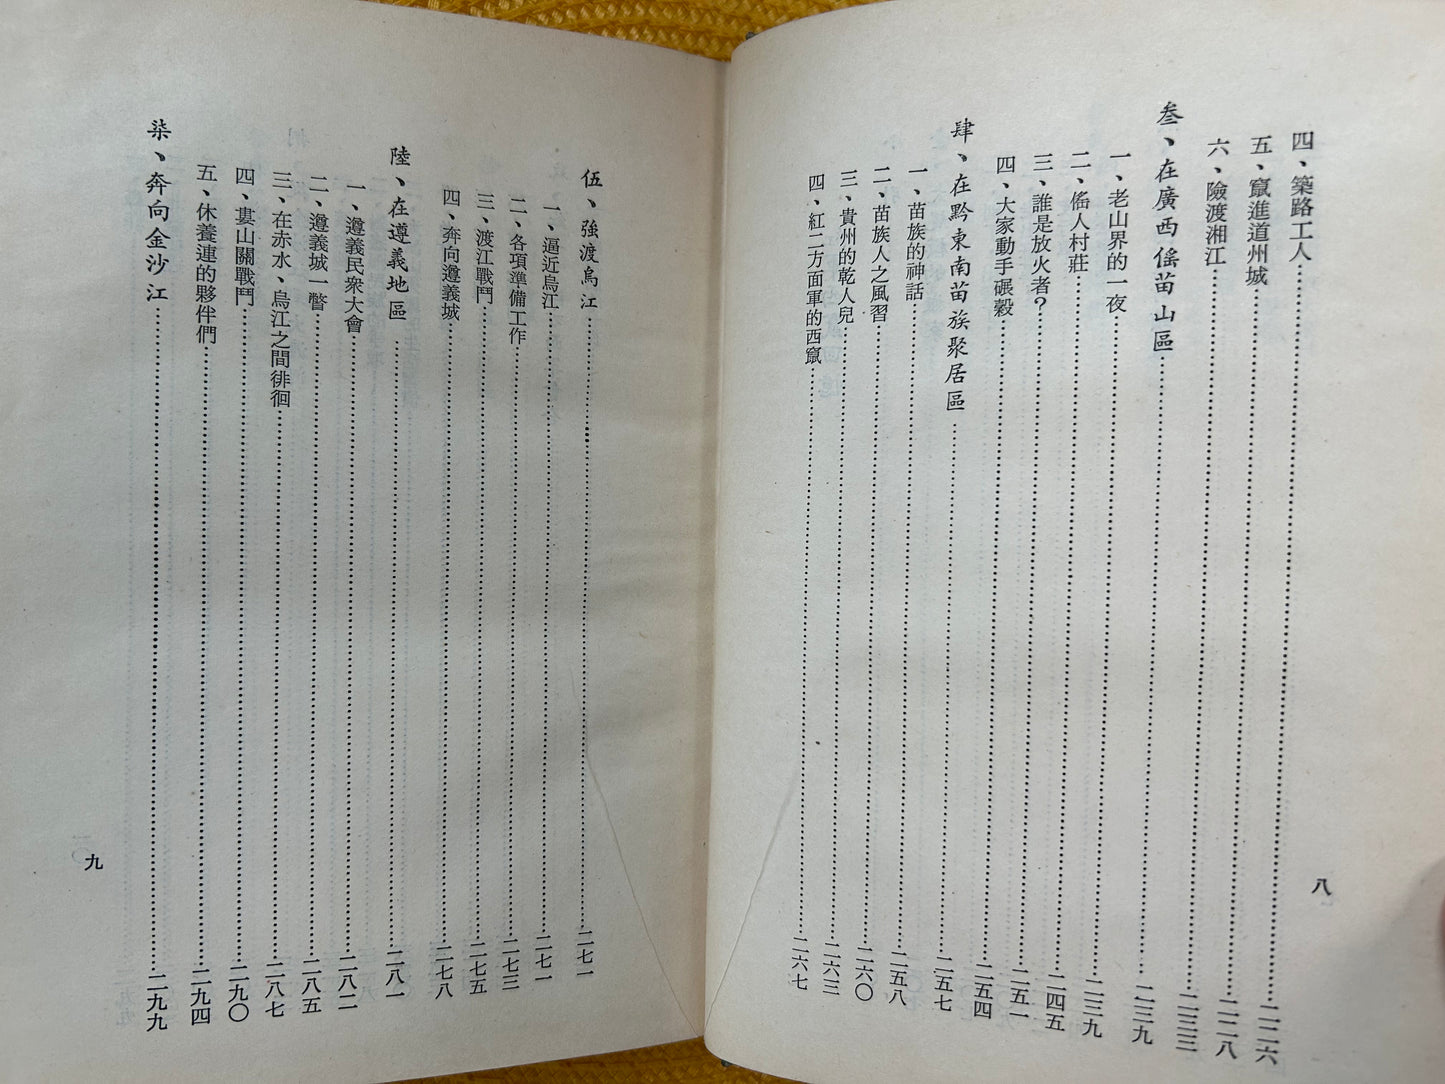 四、築路工人……二二六
五、竄進道州城……二二八
六、險渡湘江……二三三
叁、在廣西傜苗山區……二三九
一、老山界的一夜……二三九
二、傜人村莊……二四五
三、誰是放火者？……二五一
四、大家動手碾穀……二五四
肆、在黔東南苗族聚居區……二五七
一、苗族的神話……二五八
二、苗族人之風習……二六〇
三、貴州的乾人兒……二六三
四、紅二方面軍的西竄……二六七
八
伍、強渡烏江……二七一
一、逼近烏江……二七一
二、各項準備工作……二七三
三、渡江戰鬥……二七五
四、奔向遵義城……二七八
陸、在遵義地區……二八一
一、遵義民衆大會……二八二
二、遵義城一瞥……二八五
三、在赤水、烏江之間徘徊……二八七
四、婁山關戰鬥……二九〇
五、休養連的夥伴們……二九四
柒、奔向金沙江……二九九
九